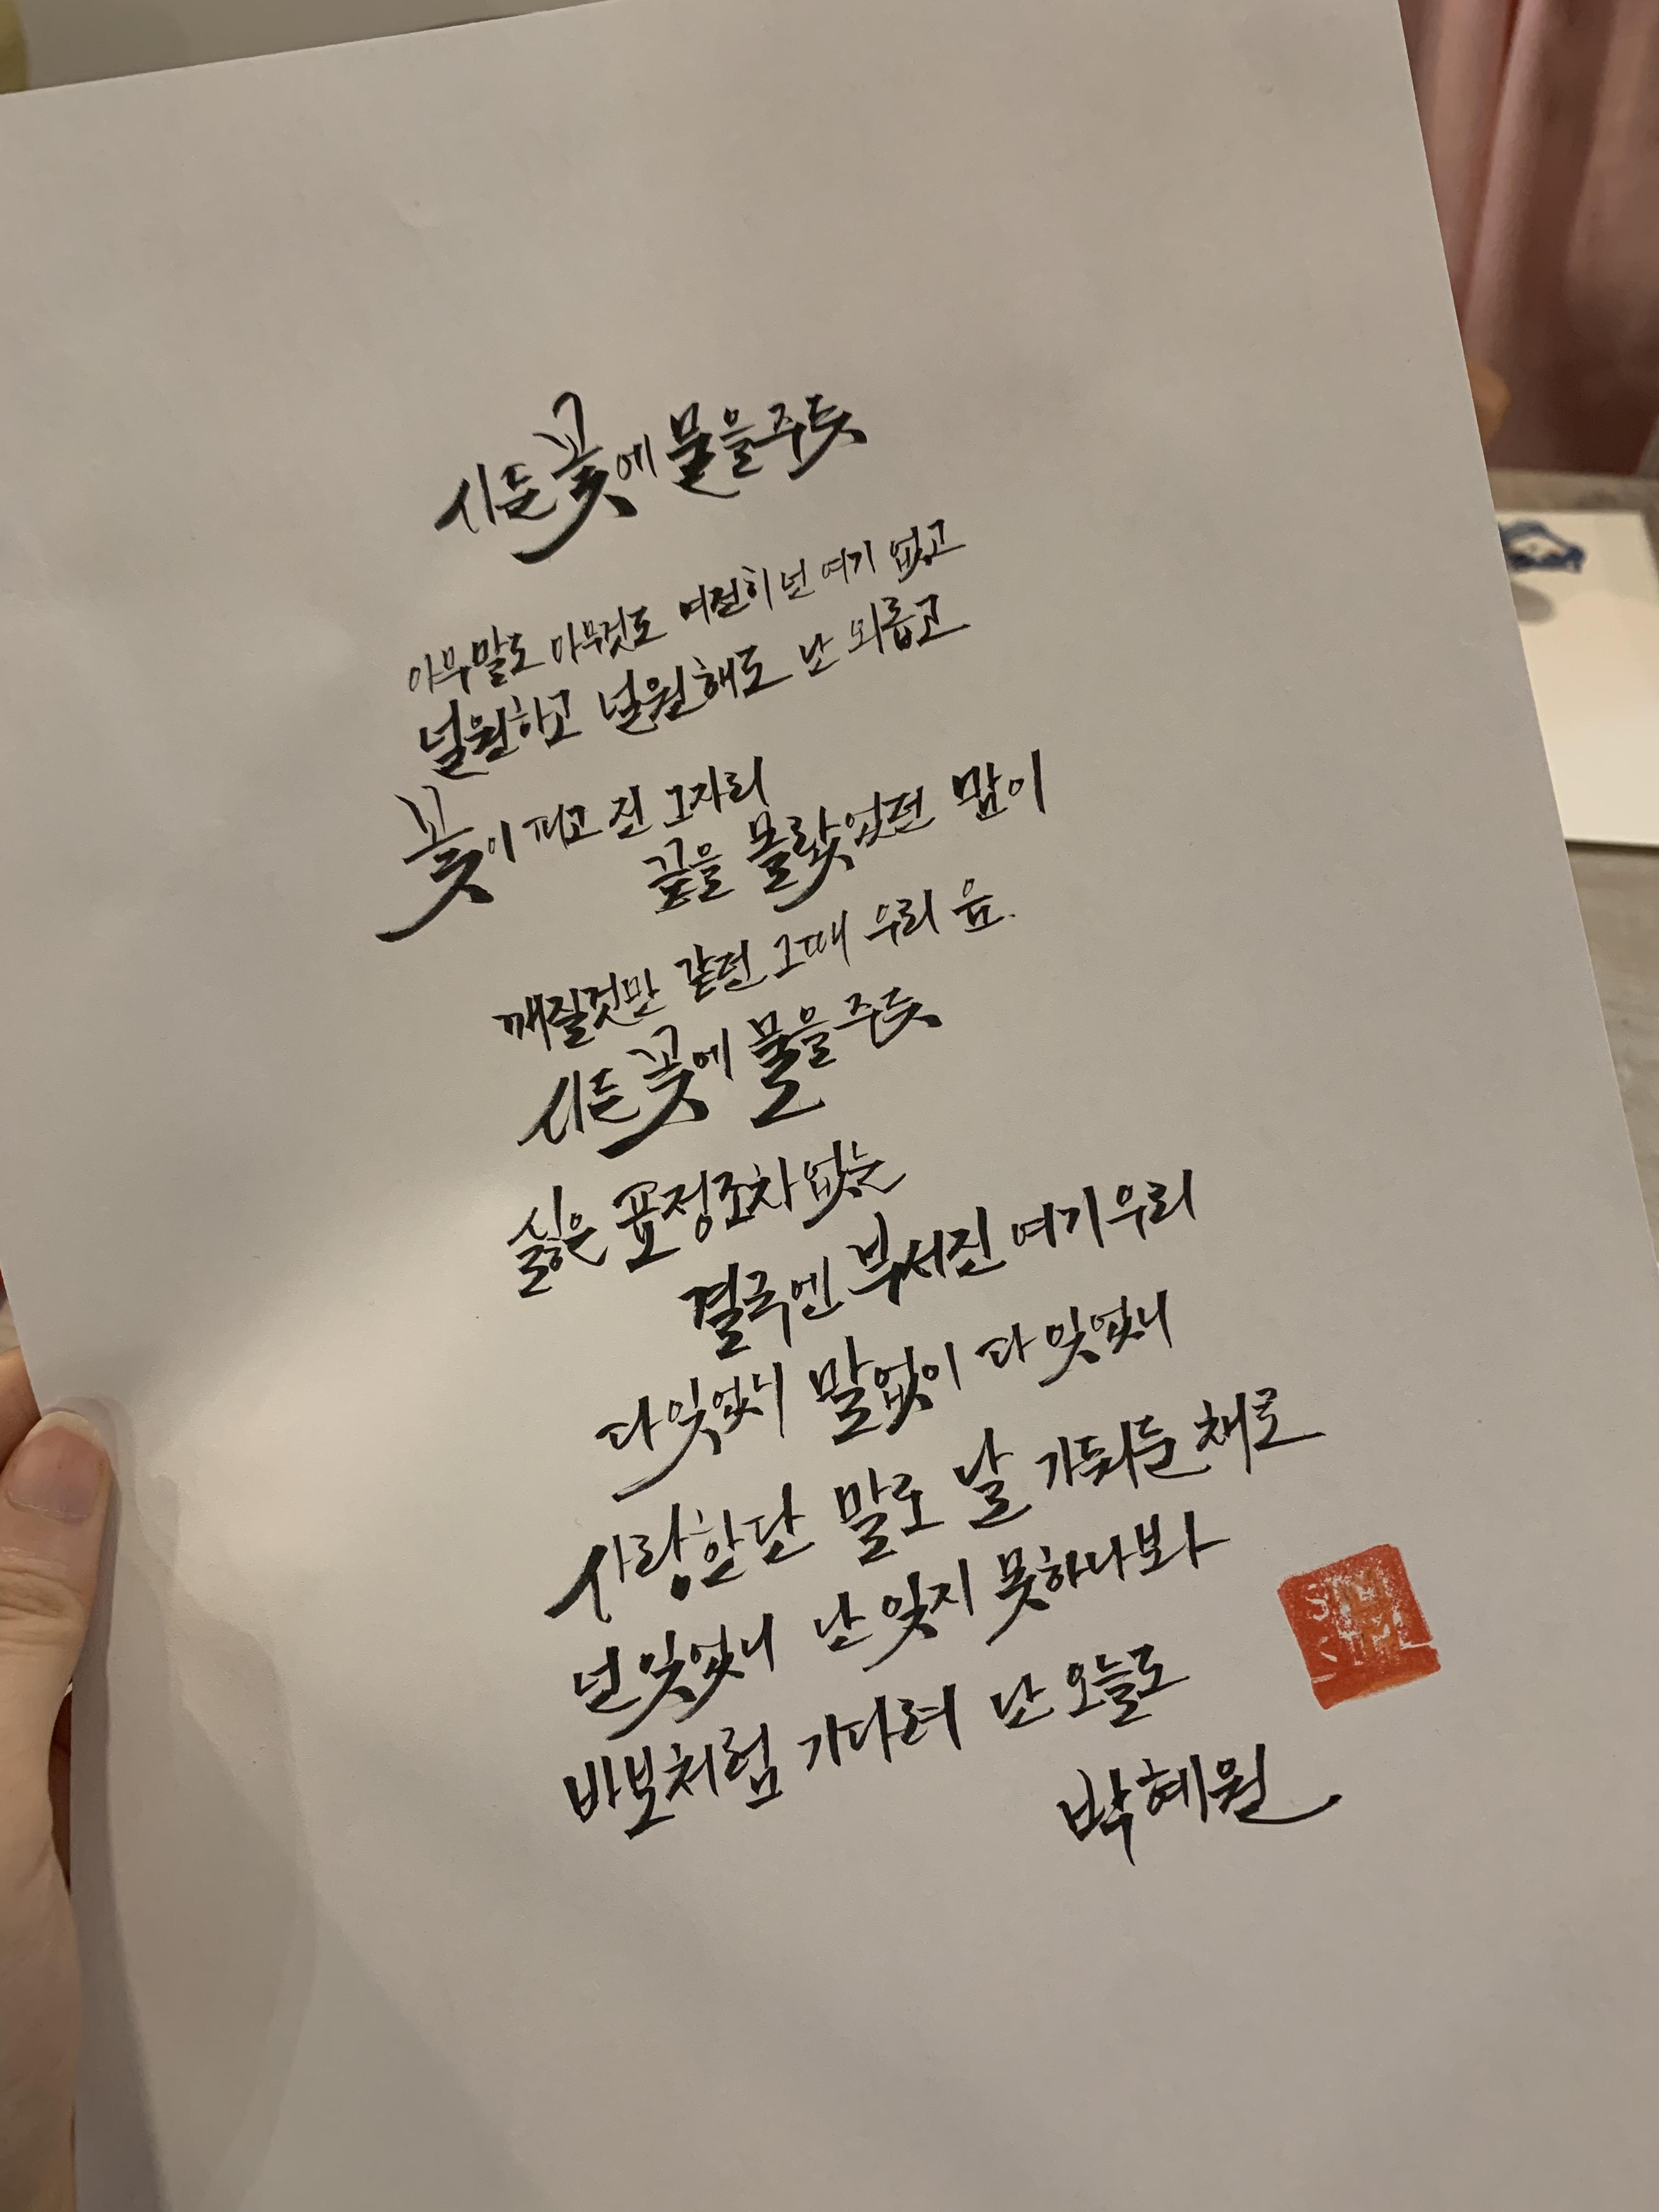 시든 꽃에 물을 주듯
아무말도 아무것도 여전히 넌 여기 없고
널 원하고 널 원해도 난 외롭고
꽃이 피고 진 그자리
끝을 몰랐었던 맘이
깨질것만 같던 그때 우리
시든 꽃에 물을 주듯
싫은 표정조차 없는
결국엔 부서진 여기 우리
다 잊었니 말없이 다 잊었니
사랑한단 말로 날 가둬둔 채로
넌 잊었니 난 잊지 못하나봐
바보처럼 기다려 난 오늘도
박혜원